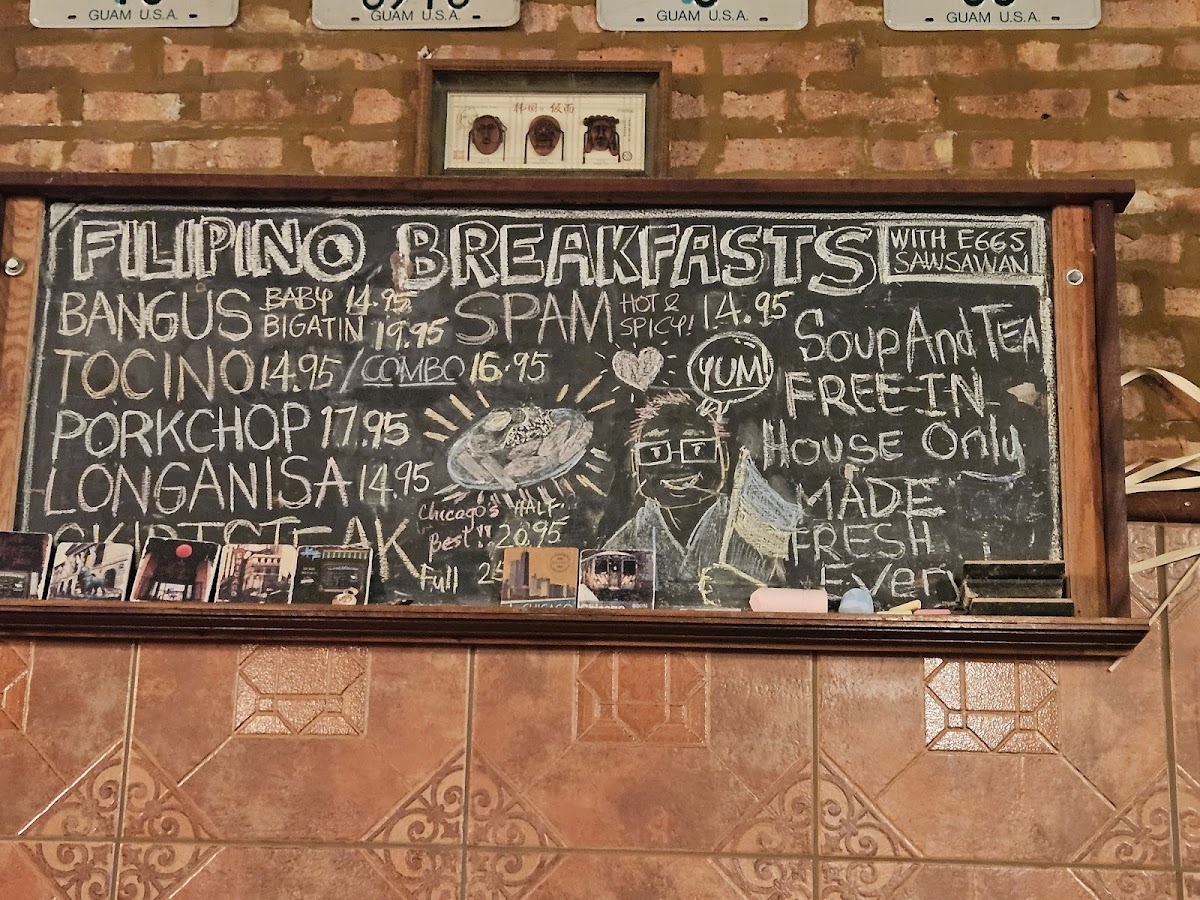 GUAM U.S.A.
GUAM U.S.A.
GUAM U.S.A.
GUAM U.S.A.
韩国 假面
FILIPINO BREAKFASTS
WITH EGGS
SAWSAWAN
BANGUS BABY 14.95
BIGATIN 19.95
SPAM HOT &
SPICY! 14.95
TOCINO 14.95 / COMBO 16.95
PORKCHOP 17.95
LONGANISA 14.95
SKIRTSTEAK
Chicago's
Best!!
HALF
20.95
Full
YUM!
Soup And TEA
FREE-IN
HOUSE Only
MADE
FRESH
Even
CHICAGO